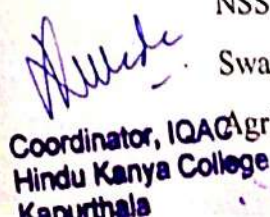 NSS
Swa
Agr
Coordinator, IQAC
Hindu Kanya College
Kapurthala